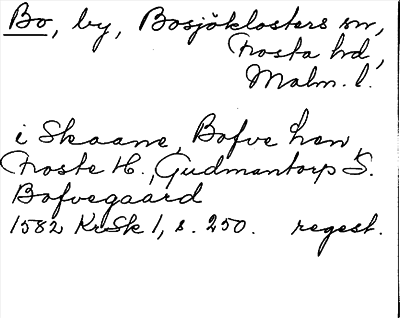 Bo, by, Bosjöklosters sn,
Frosta hd,
Malm. l.
i Skaane, Bofve hen,
Froste H., Gudmantorp S.
Bofvegaard
1582 KrSk 1, s. 250. regest.